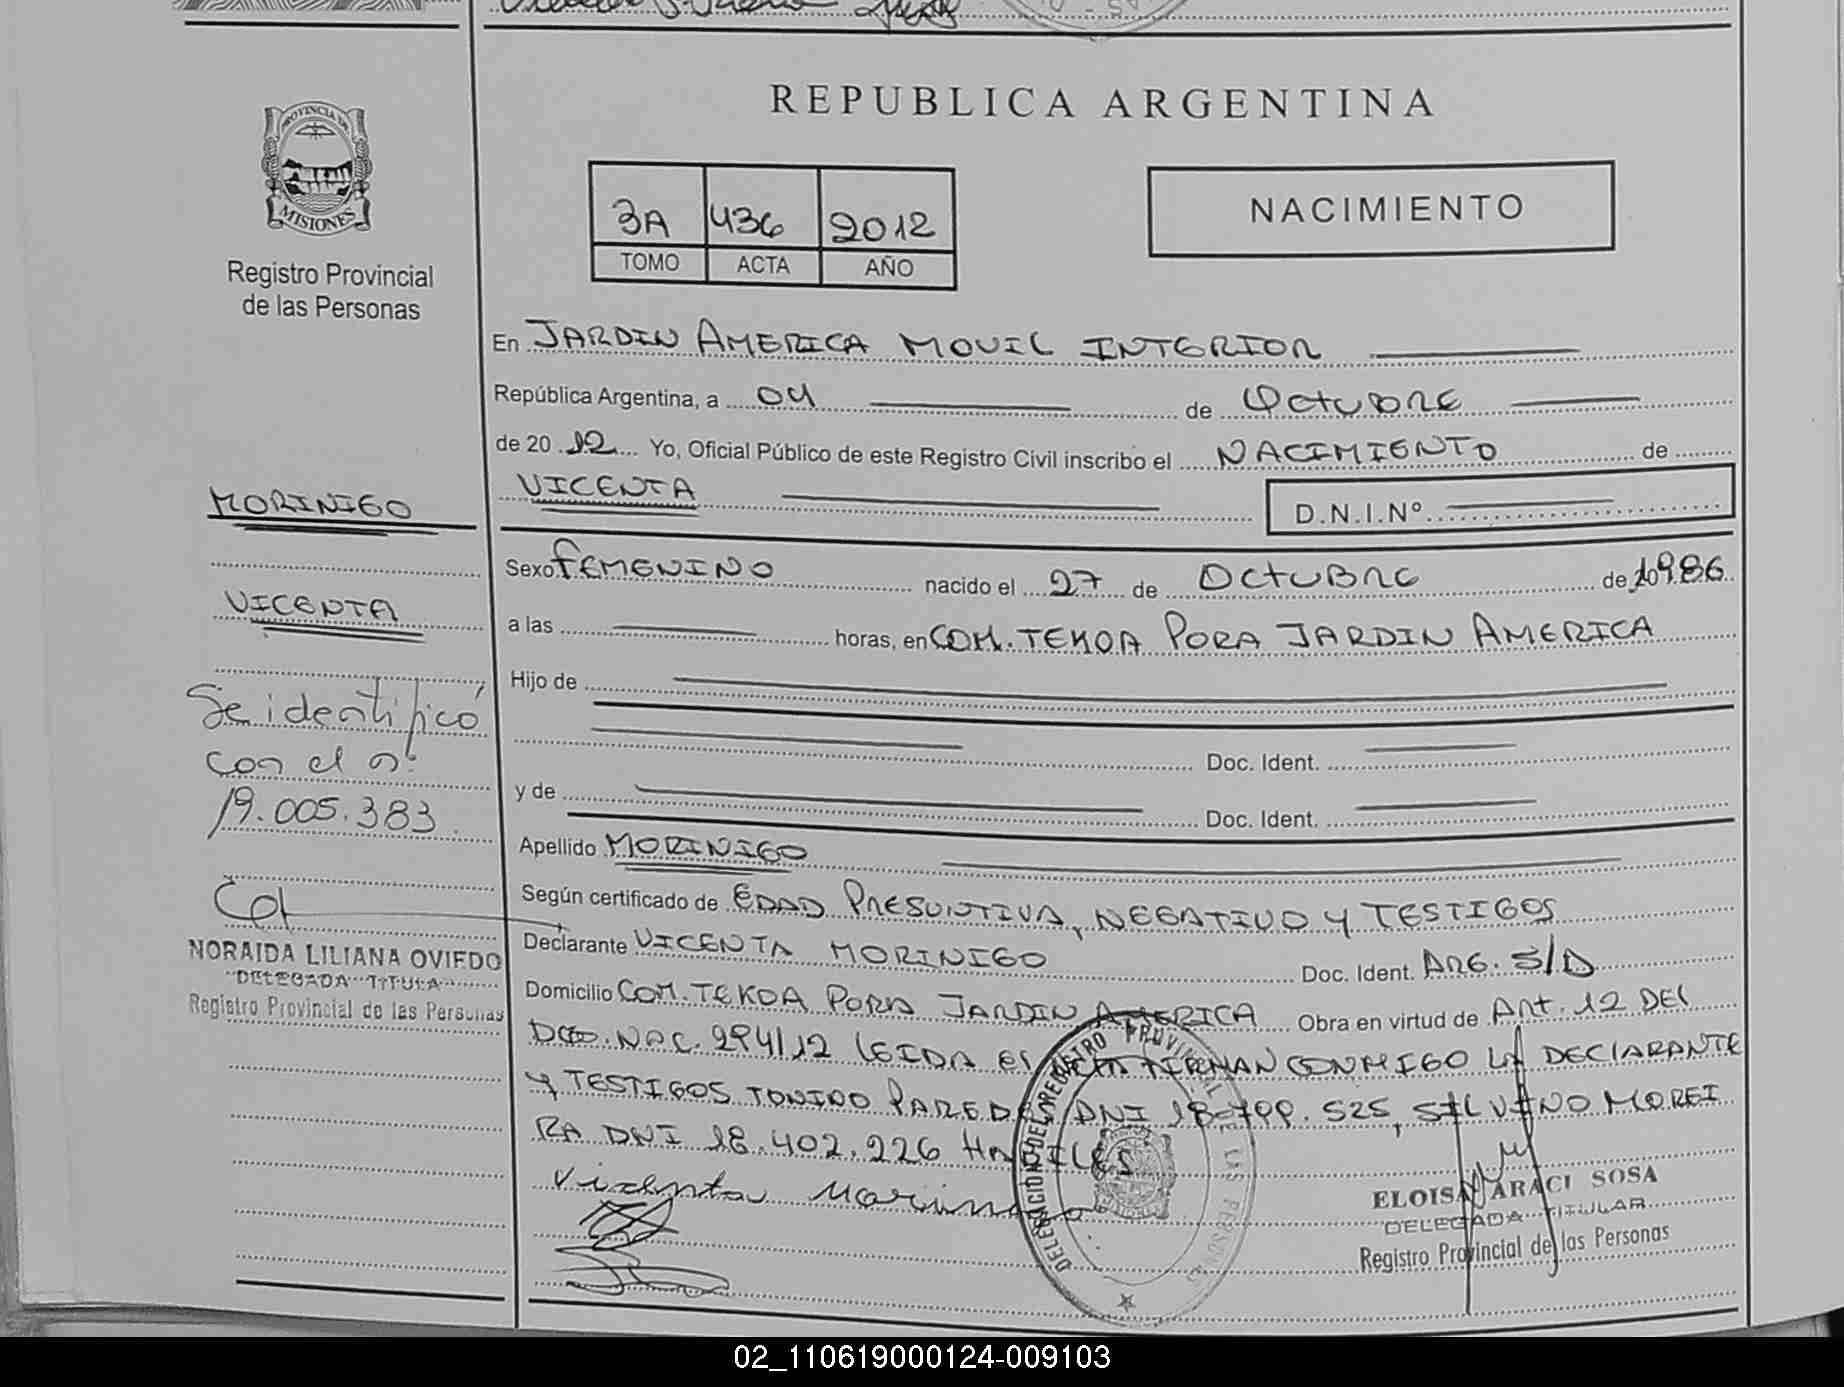 REPUBLICA ARGENTINA
PROVINCIA DE
MISIONES
Registro Provincial
de las Personas
3A 436 2012
TOMO ACTA AÑO
NACIMIENTO
En JARDIN AMERICA MOVIL INTERIOR
República Argentina, a 04 de Octubre
de 20 12 Yo, Oficial Público de este Registro Civil inscribo el NACIMIENTO de
VICENTA D.N.I.Nº
MORINIGO
VICENTA
Se identificó
con el nº
19.005.383
NORAIDA LILIANA OVIEDO
DELEGADA TITULA
Registro Provincial de las Personas
Sexo FEMENINO nacido el 27 de OCTUBRE de 1986
a las horas, en COM. TEKOA PORA JARDIN AMERICA
Hijo de
Doc. Ident.
y de
Doc. Ident.
Apellido MORINIGO
Según certificado de EDAD PRESUNTIVA, NEGATIVO Y TESTIGOS
Declarante VICENTA MORINIGO Doc. Ident. ARG. S/D
Domicilio COM. TEKOA PORA JARDIN AMERICA Obra en virtud de ART. 12 DEL
DCTO. NAC. 294/12 LEIDA EL ACTA FIRMAN CONMIGO LA DECLARANTE
Y TESTIGOS TONIDO PAREDES DNI 18.799.525, SILVINO MOREI
RA DNI 18.402.226 HABILES
Vicenta Morinigo
DELEGACION DEL REGISTRO PROVINCIAL DE LAS PERSONAS
ELOISA ARACI SOSA
DELEGADA TITULAR
Registro Provincial de las Personas
02_110619000124-009103